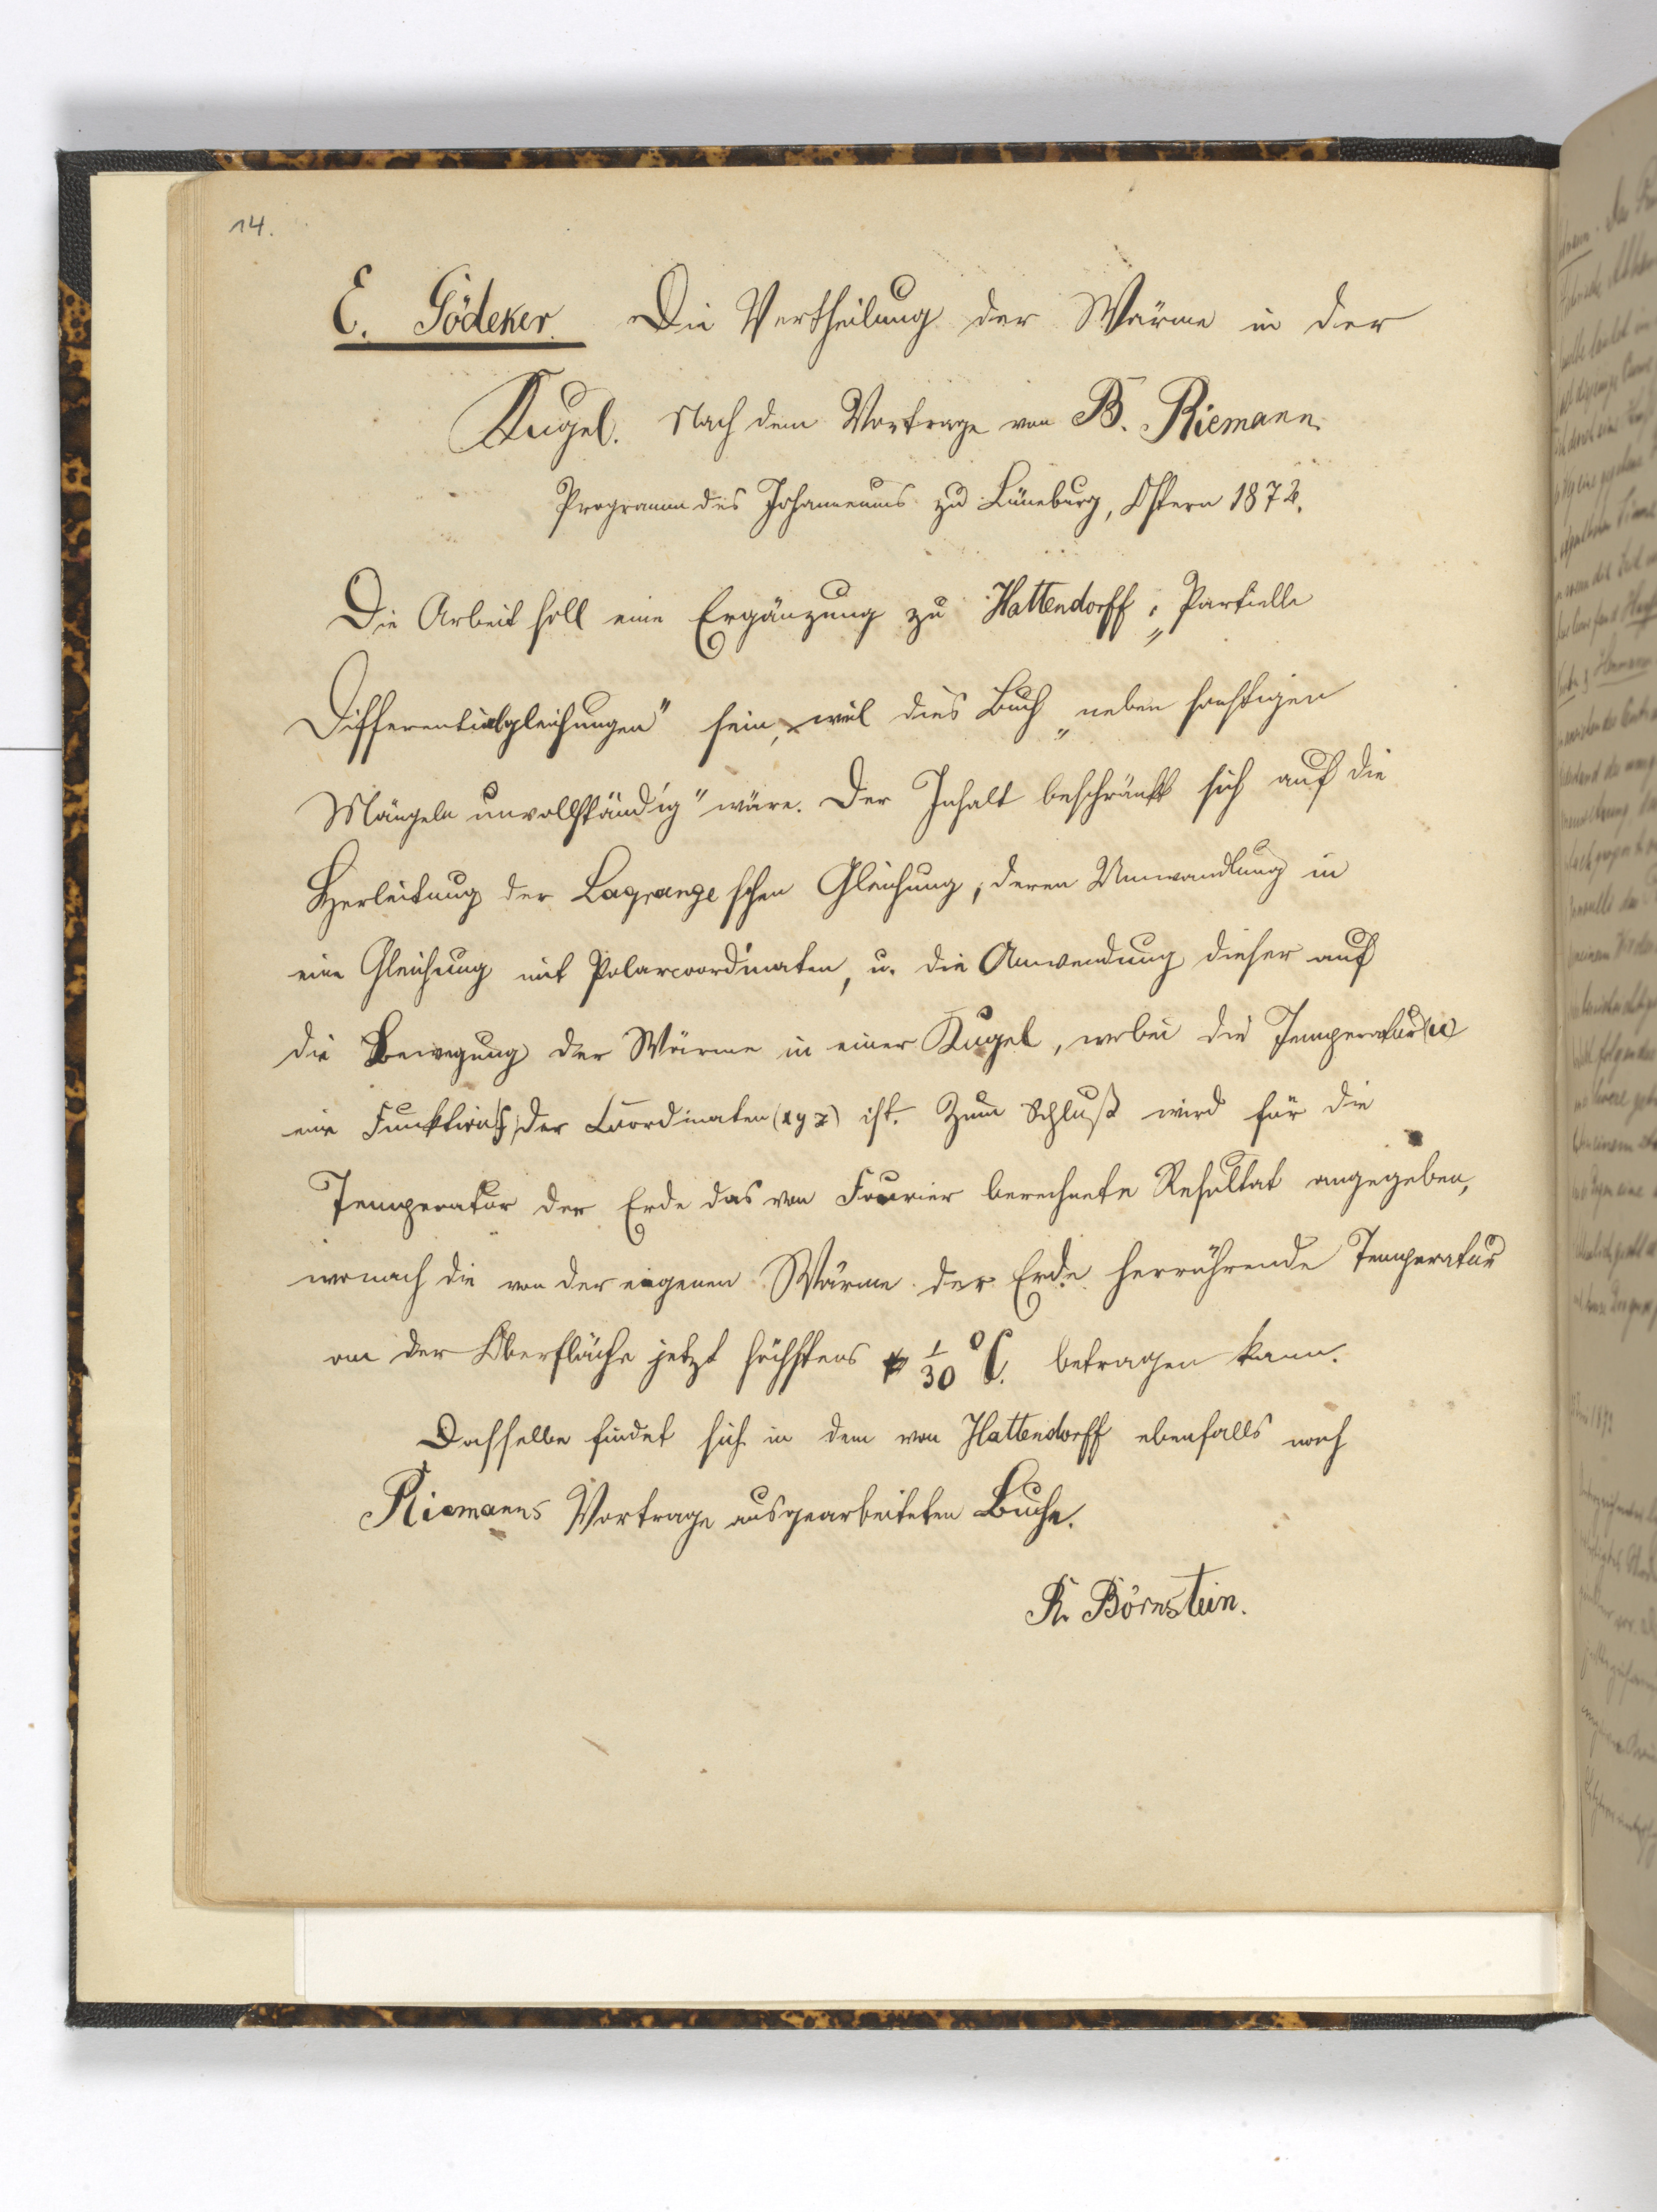 14.
E. Gödeker. Die Vertheilung der Wärme in der
Kugel. Nach dem Vortrage von B. Riemann.
Programm des Johanneums zu Lüneburg, Ostern 1872.
Die Arbeit soll eine Ergänzung zu Hattendorff, „Partielle
Differentialgleichungen" sein, weil dies Buch „neben sonstigen
Mängeln unvollständig" wäre. Der Inhalt beschränkt sich auf die
Herleitung der Lagrangeschen Gleichung, deren Umwandlung in
eine Gleichung mit Polarcoordinaten, u. die Anwendung dieser auf
die Bewegung der Wärme in einer Kugel, wobei die Temperatur (u)
eine Funktion der Coordinaten (x y z) ist. Zum Schluß wird für die
Temperatur der Erde das von Fourier berechnete Resultat angegeben,
wonach die von der eigenen Wärme der Erde herrührende Temperatur
an der Oberfläche jetzt höchstens 1/30 °C. betragen kann.
Dasselbe findet sich in dem von Hattendorff ebenfalls nach
Riemanns Vortrage ausgearbeiteten Buche.
R. Börnstein.